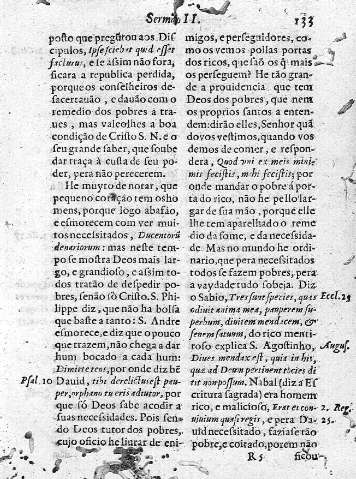 Sermão II. 133
posto que pregũtou aos Dis
cipulos, Ipse sciebat quid esset
facturus, e se assim não fora,
ficara a republica perdida,
porque os conselheiros de-
sacertauão, e dauão com o
remedio dos pobres a tra-
ues, mas valeolhes a boa
condição de Cristo S. N. e o
seu grande saber, que soube
dar traça à custa de seu po-
der, pera não perecerem.
He muyto de notar, que
pequeno coração tem os ho
mens, porque logo abafão,
e esmorecem com ver mui-
tos necessitados, Ducentorũ
denariorum: mas neste tem-
po se mostra Deos mais lar-
go, e grandioso, e assim to-
dos tratão de despedir po-
bres, senão só Cristo. S. Phi-
lippe diz, que não ha bolsa
que baste a tanto: S. Andre
esmorece, e diz que o pouco
que trazem, não chega a dar
hum bocado a cada hum:
Dimitte eos, por onde diz bẽ
Psal. 10 Dauid, tibi derelictus est pau-
per, orphano tu eris adiutor, por
que só Deos sabe acodir a
suas necessidades. Pois sen-
do Deos tutor dos pobres,
cujo oficio he liurar de eni-
migos, e perseguidores, co-
mo os vemos pollas portas
dos ricos, que saõ os q̃ mais
os perseguem? He tão gran-
de a prouidencia que tem
Deos dos pobres, que nem
os proprios santos a enten-
dem: dirão elles, Senhor quã
do vos vestimos, quando vos
demos de comer, e respon-
dera, Quod vni ex meis mini-
mis fecistis, mihi fecistis; por
onde mandar o pobre á por-
ta do rico, não he pello lar-
gar de sua mão, porque elle
lhe tem aparelhado o reme
dio da fome, e da necessida-
de. Mas no mundo he ordi-
nario, que pera necessitados
todos se fazem pobres, pera
a vaydade tudo sobeja. Diz
o Sabio, Tres sunt species, quas Eccl. 25
odiuit anima mea, pauperem su-
perbum, diuitem mendacem, &
senem fatuum, do rico menti-
roso explica S. Agostinho, Augus.
Diues mendax est, quia in his,
quæ ad Deum pertinent dicis di
tit non possum. Nabal (diz a Es
critura sagrada) era homem
rico, e malicioso, Erat ei con- 2. Reg.
uiuium quasi regis, e pera Da- 25.
uid necessitado, faziase tão
pobre, e coitado, porem não
R 5 ficou